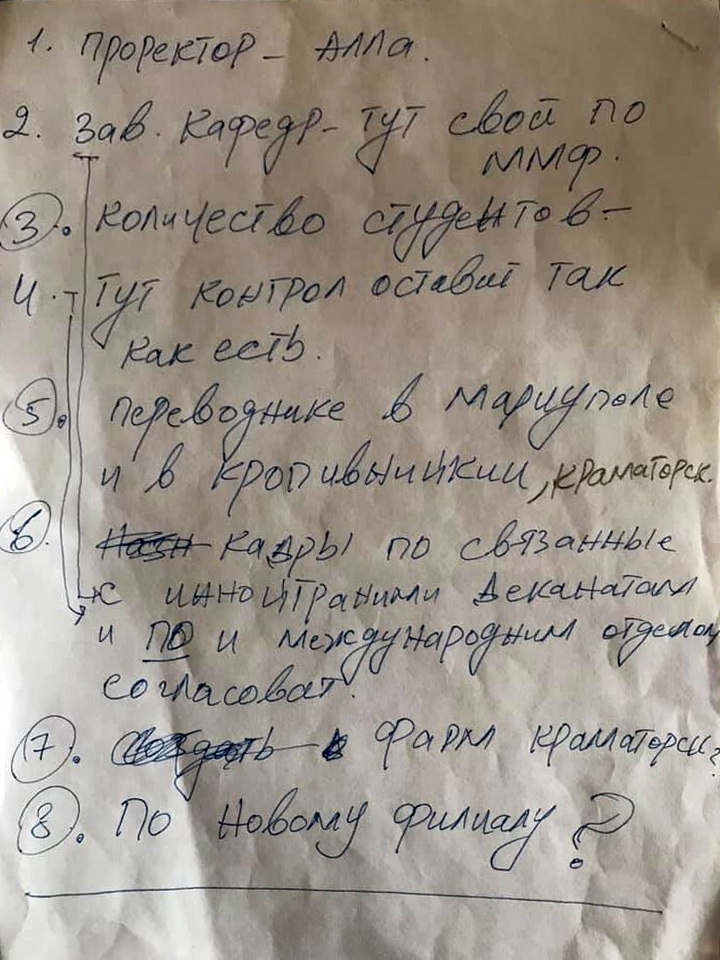 1. Проректор - Алла.
2. Зав. Кафедр - тут свой по
ММФ.
3. Количество студентов -
4. Тут контрол оставит так
как есть.
5. Переводнике в Мариуполе
и в Кропивницкии, Краматорск.
6. Кадры по связанные
с инноцтраними деканатам
и ПО и международним отделом
согласоват.
7. Создать в Фарм Краматорск?
8. По новому филиалу?